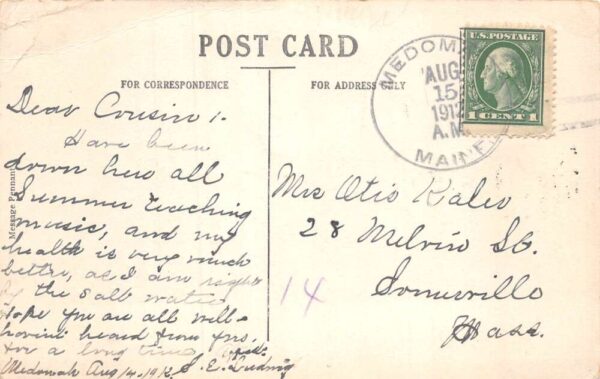 POST CARD
FOR CORRESPONDENCE
FOR ADDRESS ONLY
MEDOMAK
AUG
15
1912
A.M.
MAINE
U.S. POSTAGE
1 CENT 1
Message Pennant
Dear Cousin :-
Have been
down here all
Summer teaching
music, and my
health is very much
better, as I am right
by the salt water
Hope you are all well-
havint heard from you,
for a long time
Medomak Aug 14-1912. S. E. Ludwig
Mrs Otis Kaler
28 Melvin St.
Somerville
Mass.
14